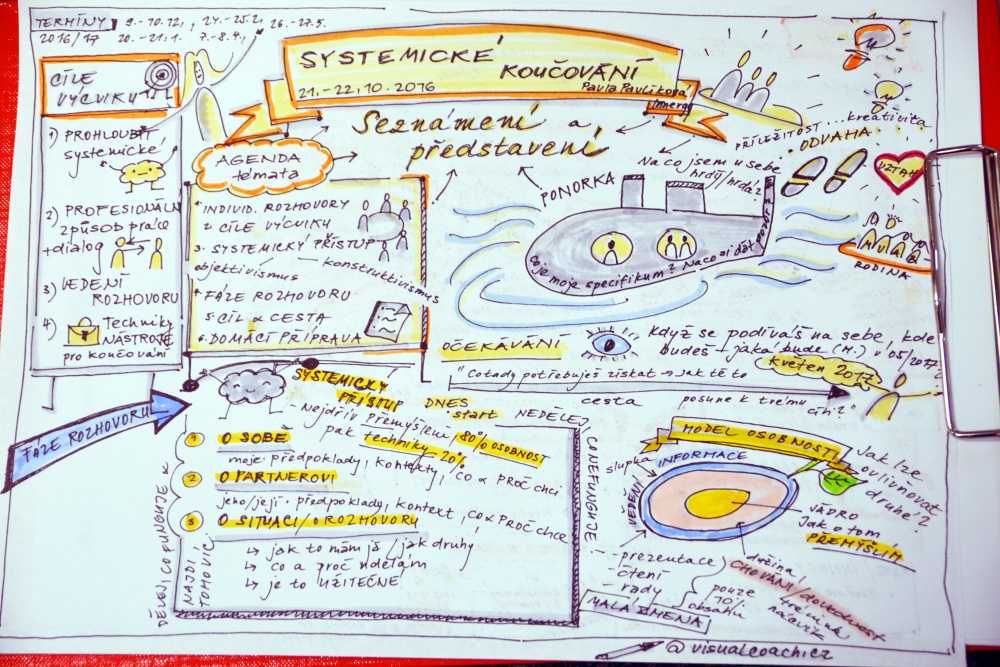 TERMÍNY
2016/17
9.-10.12., 24.-25.2., 26.-27.5.
20.-21.1. 7.-8.4.,
CÍLE
VÝCVIKU
1) PROHLOUBIT
systemické
2) PROFESIONÁLNÍ
způsob práce
+dialog
3) VEDENÍ
ROZHOVORU
4) Techniky
NÁSTROJE
pro koučování
FÁZE ROZHOVORU
SYSTEMICKÉ
KOUČOVÁNÍ
21.-22.10.2016
Pavla Pavlíková
Innergy
Seznámení a
představení
AGENDA
témata
1. INDIVID. ROZHOVORY
2 CÍLE VÝCVIKU
3. SYSTEMICKÝ PŘÍSTUP
objektivismus
konstruktivismus
4 FÁZE ROZHOVORU
5. CÍL & CESTA
6. DOMÁCÍ PŘÍPRAVA
PONORKA
Na co jsem u sebe
hrdý/hrdá?
Co je moje specifikum? Na co si dát
pozor?
PŘÍLEŽITOST...kreativita
• ODVAHA
VZTAH
RODINA
OČEKÁVÁNÍ
Když se podíváš na sebe, kde
budeš - jaká bude (M.) v 05/2017
květen 2017
"Co tady potřebuješ získat → jak tě to
posune k tvému
cíli?"
DNES
start
cesta
SYSTEMICKÝ
PŘÍSTUP
- Nejdřív přemýšlení 80% OSOBNOST
pak techniky - 20%
1 O SOBĚ
moje předpoklady, kontexty, co & PROČ chci
2 O PARTNEROVI
jeho/její předpoklady, kontext, co & PROČ chce
3 O SITUACI/O ROZHOVORU
↳ jak to mám já / jak druhý
↳ co a proč udělám
↳ je to UŽITEČNÉ
DĚLEJ CO FUNGUJE &
NAJDI
TOHO VÍC.
NEDĚLEJ
CO NEFUNGUJE!
MODEL OSOBNOSTI
slupka
INFORMACE
VĚDĚNÍ
Jak lze
ovlivňovat
druhé?
JÁDRO
Jak o tom
PŘEMÝŠLÍM
dužina
CHOVÁNÍ/dovednosti
trénink
návyk
- prezentace
- čtení
- rady
pouze
10%
obsahu
MALÁ ZMĚNA
@visualcoachcz